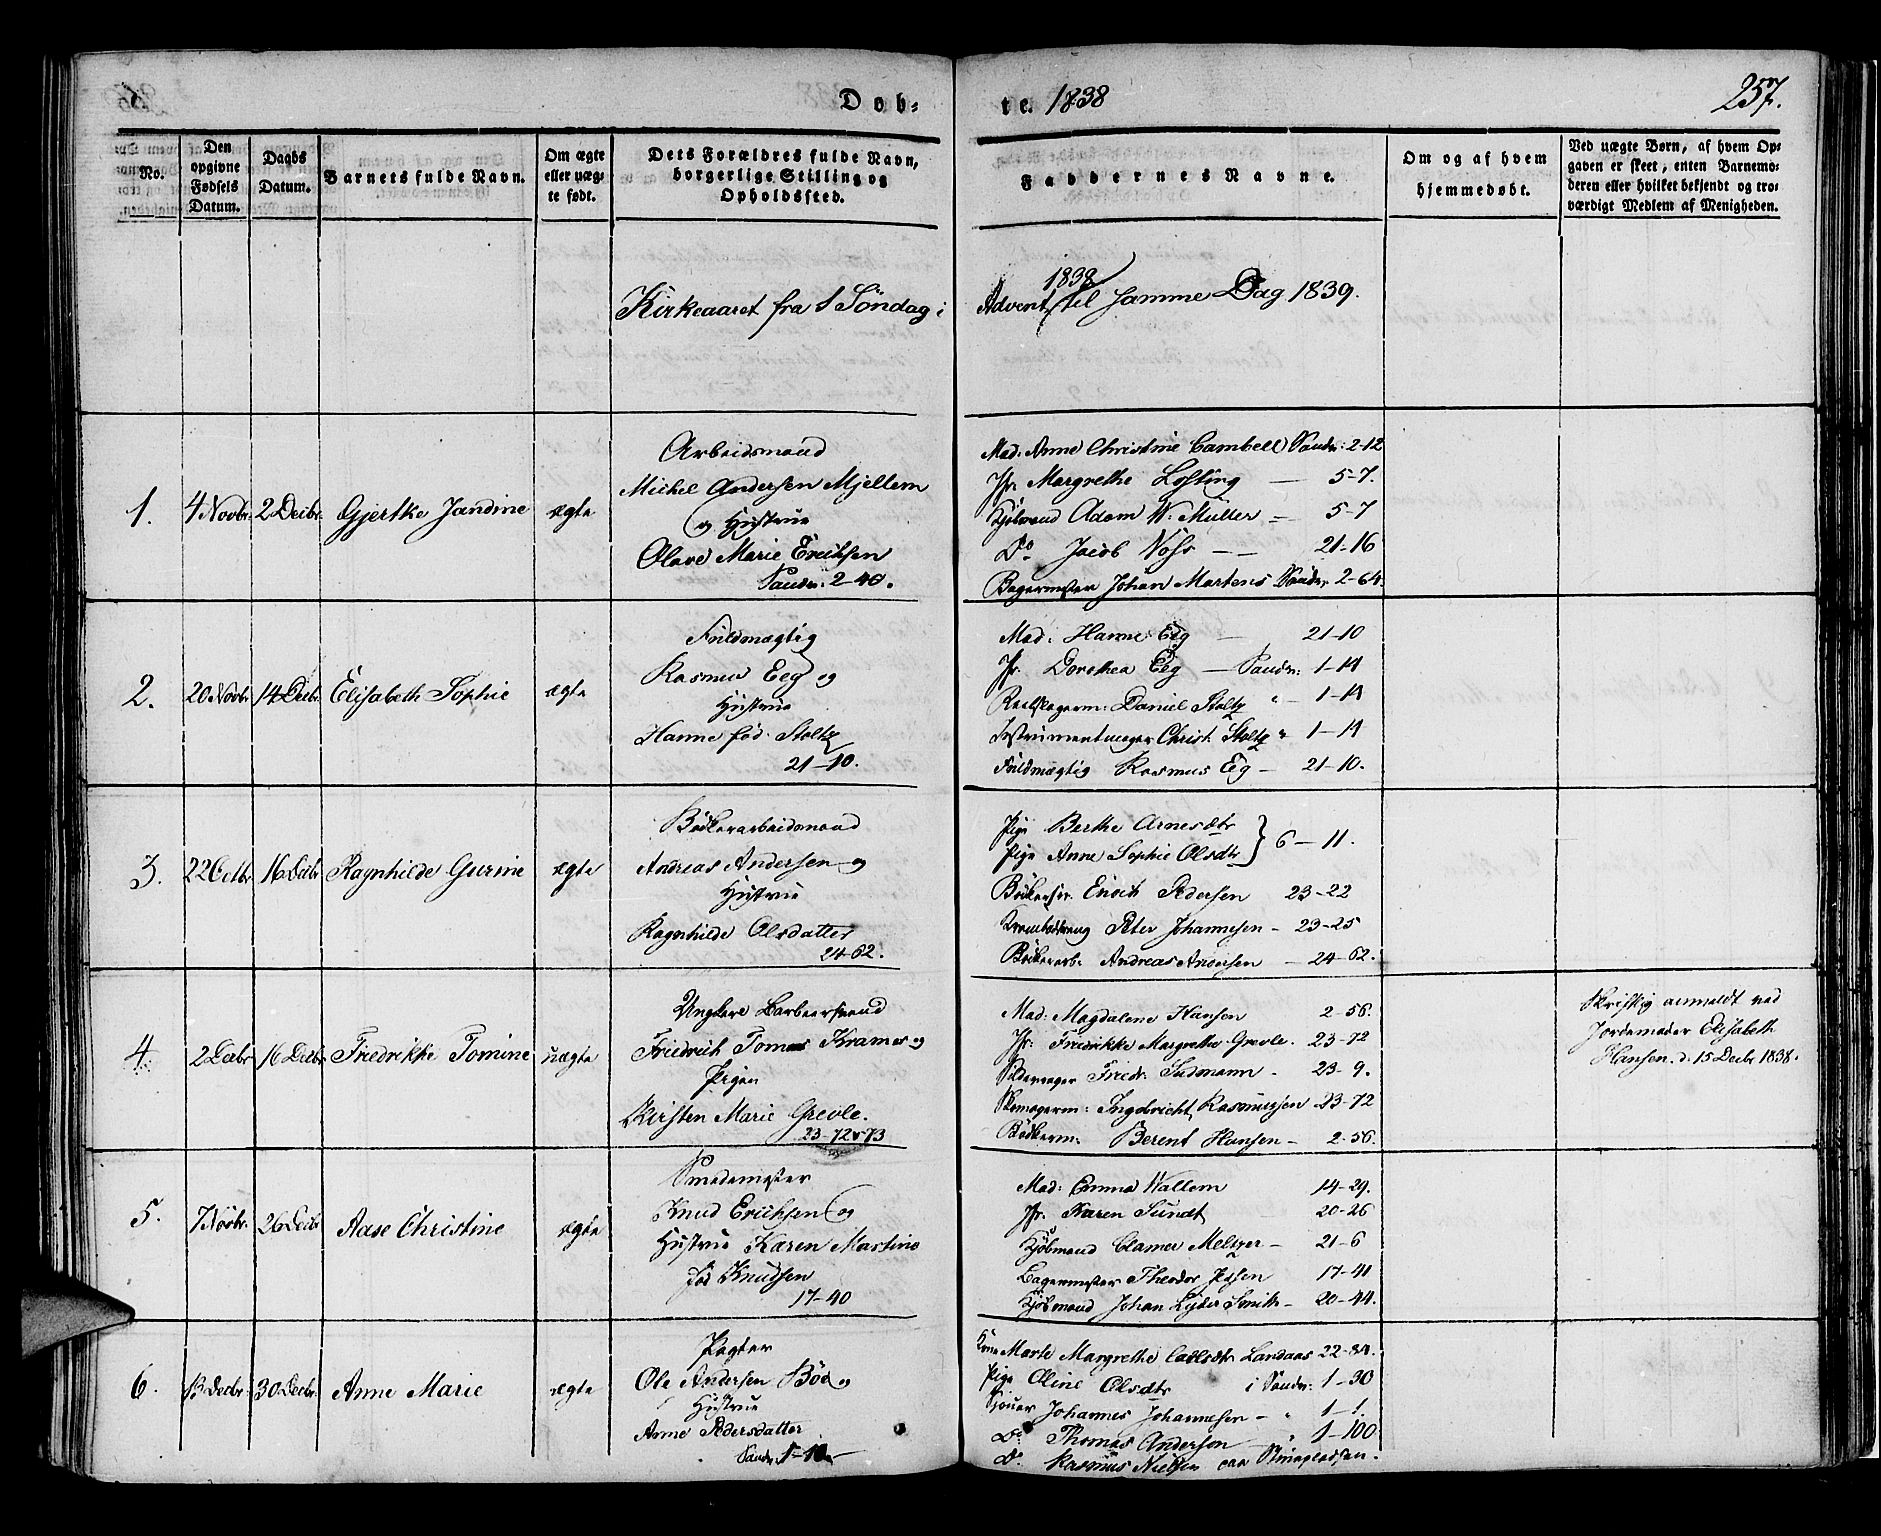 Døb-
te. 1838
257.
No.
Den opgivne Fødsels Datum.
Daabs Datum.
Barnets fulde Navn.
Om ægte eller uægte født.
Dets Forældres fulde Navn, borgerlige Stilling og Opholdssted.
Faddernes Navne.
Om og af hvem hjemmedøbt.
Ved uægte Børn, af hvem Opgaven er skeet, enten Barnemoderen eller hvilket bekjendt og troværdigt Medlem af Menigheden.
Kirkeaaret fra 1 Søndag i
1838
Advent til samme Dag 1839.
1. 4 Novbr. 2 Decbr. Gjertke Jandine ægte
Arbeidsmand
Michel Andersen Mjellem
og Hustrue
Olave Marie Erichsen
Sandv. 2-40.
Mad: Anne Christine Cambell Sandv: 2-12
Jfr. Margrethe Lofting — 5-7.
Kjøbmand Adam W. Müller — 5-7
Do Jacob Nohr — 21-16
Bagermester Johan Martens Sandv. 2-64.
2. 20 Novbr 14 Decbr. Elisabeth Sophie ægte
Fuldmægtig
Rasmus Eeg og
Hustrue
Hanne fød. Stoltz
21-10.
Mad: Hanne Eeg — 21-10
Jfr. Dorothea Eeg — Sandv: 1-14
Reebslagerm: Daniel Stoltz " 1-14
Instrumentmager Christ. Stoltz " 1-14
Fuldmægtig Rasmus Eeg — 21-10.
3. 22 Octbr 16 Decbr Ragnhilde Gurine ægte
Bødkerarbeidsmand
Andreas Andersen og
Hustrue
Ragnhilde Olsdatter
24-62.
Pige Berthe Arnesdtr
Pige Anne Sophie Olsdtr } 6-11.
Bødkersv. Enoch Pedersen 23-22
Peter Johannesen - 23-25
Bødkerarb. Andreas Andersen — 24-62.
4. 2 Decbr 16 Decbr Fredrikke Tomine uægte
Ungkarl Barbeersvend
Friedrich Tomas Kramer og
Pigen
Kirsten Marie Grevle.
23-72 & 73
Mad: Magdalene Hansen 2-56.
Jfr. Fredrikke Margrethe Grevle. 23-72
Fredr. Sudmann - 23-9.
Skomagerm: Ingebricht Rasmussen 23-72
Bødkerm: Berent Hansen — 2-56.
Skriftlig anmeldt ved
Jordemoder Elisabeth
Hansen. d. 15 Decbr 1838.
5. 7 Novbr. 26 Decbr Aase Christine ægte
Smedemester
Knud Erichsen og
Hustrue Karen Martine
fød Knudsen
17-40
Mad: Emma Wallem 14-29.
Jfr. Karen Sundt 20-26
Kjøbmand Clamer Meltzer — 21-6
Bagermester Theodor Jessen 17-41
Kjøbmand Johan Lyder Smith — 20-44.
6. 13 Decbr. 30 Decbr. Anne Marie ægte
Pagter
Ole Andersen Bøe og
Hustrue
Anne Pedersdatter
Sandv. 1-10
Kone Marte Margrethe Carlsdtr Landaas 22-84.
Pige Oline Olsdtr i Sandv: 1-30
Johannes Johannesen — " 1-1.
Do Thomas Anderson " 1-100
Do Rasmus Nielsen paa